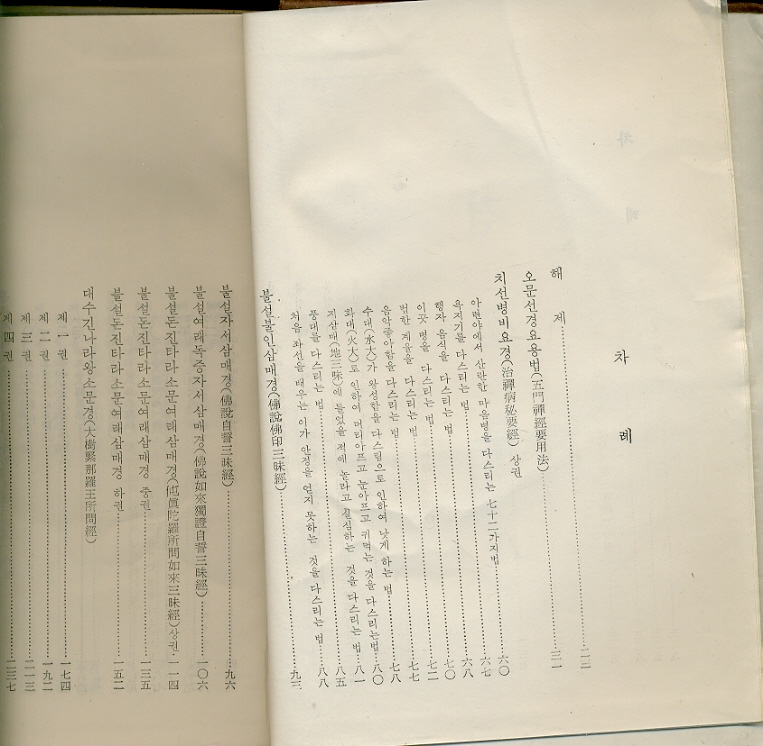 차 례
해 제 ……… 二二
오문선경요용법(五門禪經要用法) ……… 三一
치선병비요경(治禪病秘要經) 상권
아련야에서 산란한 마음병을 다스리는 七十二가지법 ……… 六〇
욕자기를 다스리는 법 ……… 六七
행자 음식을 다스리는 법 ……… 六八
이곳 병을 다스리는 법 ……… 七〇
범한 계율을 다스리는 법 ……… 七二
음악좋아함을 다스리는 법 ……… 七七
수대(水大)가 왕성함을 다스림으로 인하여 낫게 하는 법 ……… 七八
화대(火大)로 인하여 머리아프고 눈아프고 귀먹는 것을 다스리는법 ……… 八〇
지삼매(地三昧)에 들었을 적에 놀라고 실심하는 것을 다스리는 법 ……… 八一
풍대를 다스리는 법 ……… 八五
처음 좌선을 배우는 이가 안정을 얻지 못하는 것을 다스리는 법 ……… 八八
불설불인삼매경(佛說佛印三昧經) ……… 九三
불설자서삼매경(佛說自誓三昧經) ……… 九六
불설여래독증자서삼매경(佛說如來獨證自誓三昧經) ……… 一〇六
불설돈진타라소문여래삼매경(伅眞陀羅所問如來三昧經) 상권 ……… 一一四
불설돈진타라소문여래삼매경 중권 ……… 一三五
불설돈진타라소문여래삼매경 하권 ……… 一五二
대수긴나라왕소문경(大樹緊那羅王所問經)
제 一 권 ……… 一七四
제 二 권 ……… 一九二
제 三 권 ……… 二一三
제 四 권 ……… 二三七